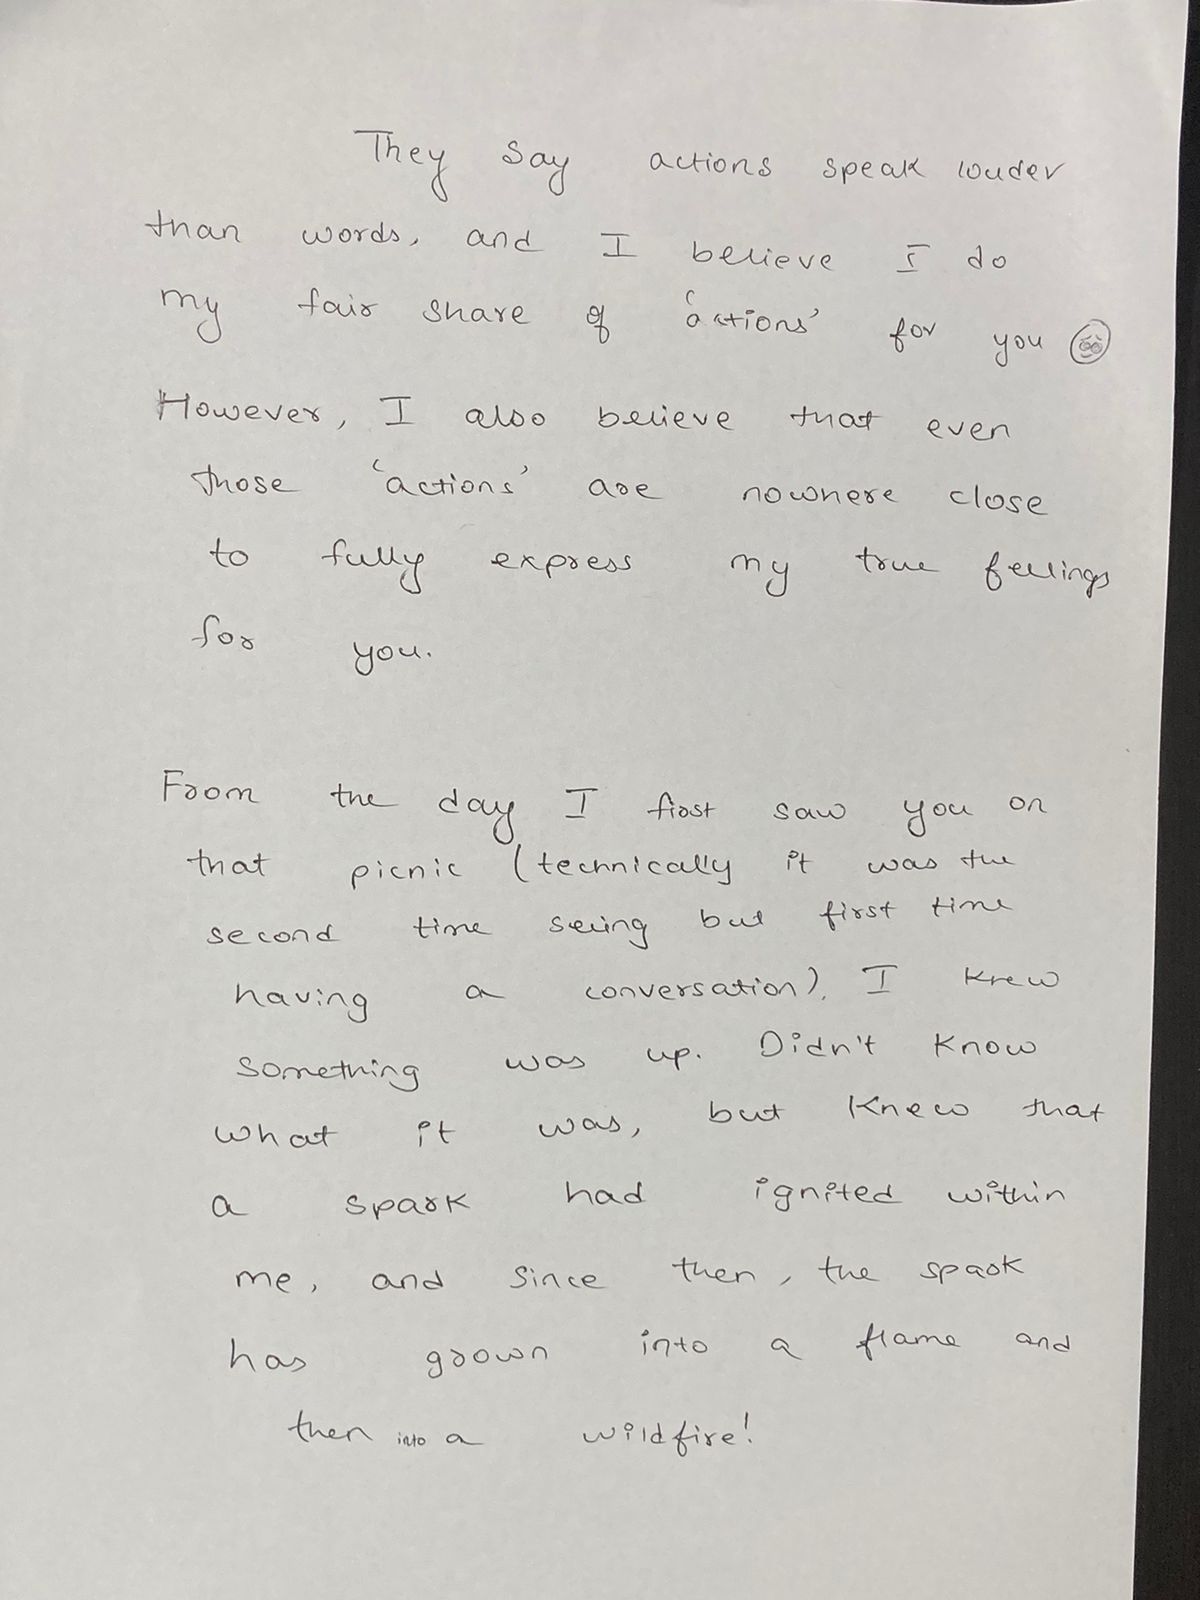 They say actions speak louder
than words, and I believe I do
my fair share of 'actions' for you
However, I also believe that even
those 'actions' are nowhere close
to fully express my true feelings
for you.
From the day I first saw you on
that picnic (technically it was the
second time seeing but first time
having a conversation), I knew
something was up. Didn't know
what it was, but knew that
a spark had ignited within
me, and since then, the spark
has grown into a flame and
then into a wildfire!